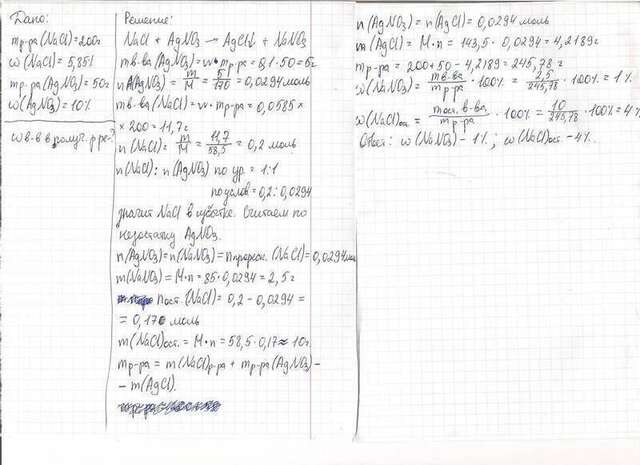 Дано:
mр-ра (NaCl) = 200г
ω (NaCl) = 5,85%
mр-ра (AgNO₃) = 50г
ω (AgNO₃) = 10%
ω в-в в получ. р-ре-?
Решение:
NaCl + AgNO₃ → AgCl↓ + NaNO₃
mв-ва (AgNO₃) = ω · mр-ра = 0,1 · 50 = 5г
n(AgNO₃) = m/M = 5/170 = 0,0294 моль
mв-ва (NaCl) = ω · mр-ра = 0,0585 ×
× 200 = 11,7г
n(NaCl) = m/M = 11,7/58,5 = 0,2 моль
n(NaCl) : n(AgNO₃) по ур. = 1:1
по услов = 0,2 : 0,0294
значит NaCl в избытке. Считаем по
недостатку AgNO₃.
n(AgNO₃) = n(NaNO₃) = nпрореаг. (NaCl) = 0,0294 моль
m(NaNO₃) = M·n = 85·0,0294 = 2,5г
nост. (NaCl) = 0,2 - 0,0294 =
= 0,170 моль
m(NaCl)ост. = M·n = 58,5·0,17 ≈ 10г.
mр-ра = m(NaCl)р-ра + mр-ра (AgNO₃) -
- m(AgCl).
n(AgNO₃) = n(AgCl) = 0,0294 моль
m(AgCl) = M·n = 143,5 · 0,0294 = 4,2189г
mр-ра = 200+50 - 4,2189 = 245,78г
ω(NaNO₃) = mв-ва/mр-ра · 100% = 2,5/245,78 · 100% = 1%
ω(NaCl)ост. = mост. в-ва/mр-ра · 100% = 10/245,78 · 100% = 4%
Ответ: ω(NaNO₃) - 1%; ω(NaCl)ост. - 4%.